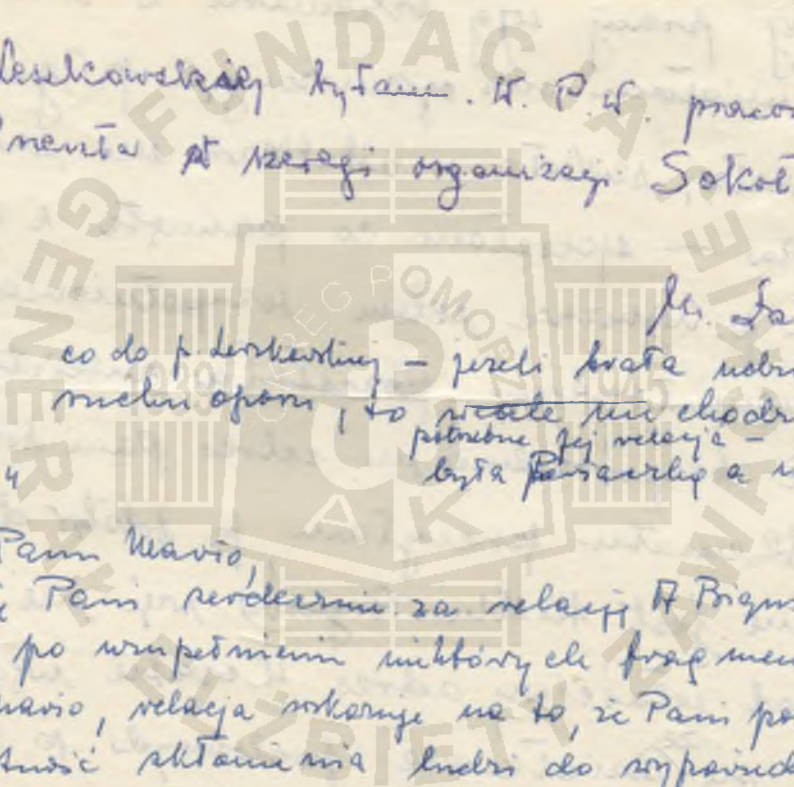 Leszkowskiej byłam. W. P. W. pracow
w szeregi organizacji Sokół
Mr. Ża
co do p. Leszkowskiej – jeżeli brała udzi
ruchu oporu, to wcale nie chodzi
potrzebna jej relacja –
była a
4
Pani Mario,
Pani serdecznie za relację A Brygus
po uzupełnieniu niektórych fragmen
Mario, relacja wskazuje na to, że Pani po
skłonienia ludzi do wypowied
FUNDACJA
GENERAŁ ELŻBIETY ZAWACKIEJ
OKRĘG POMORZE
1939 1945
AK